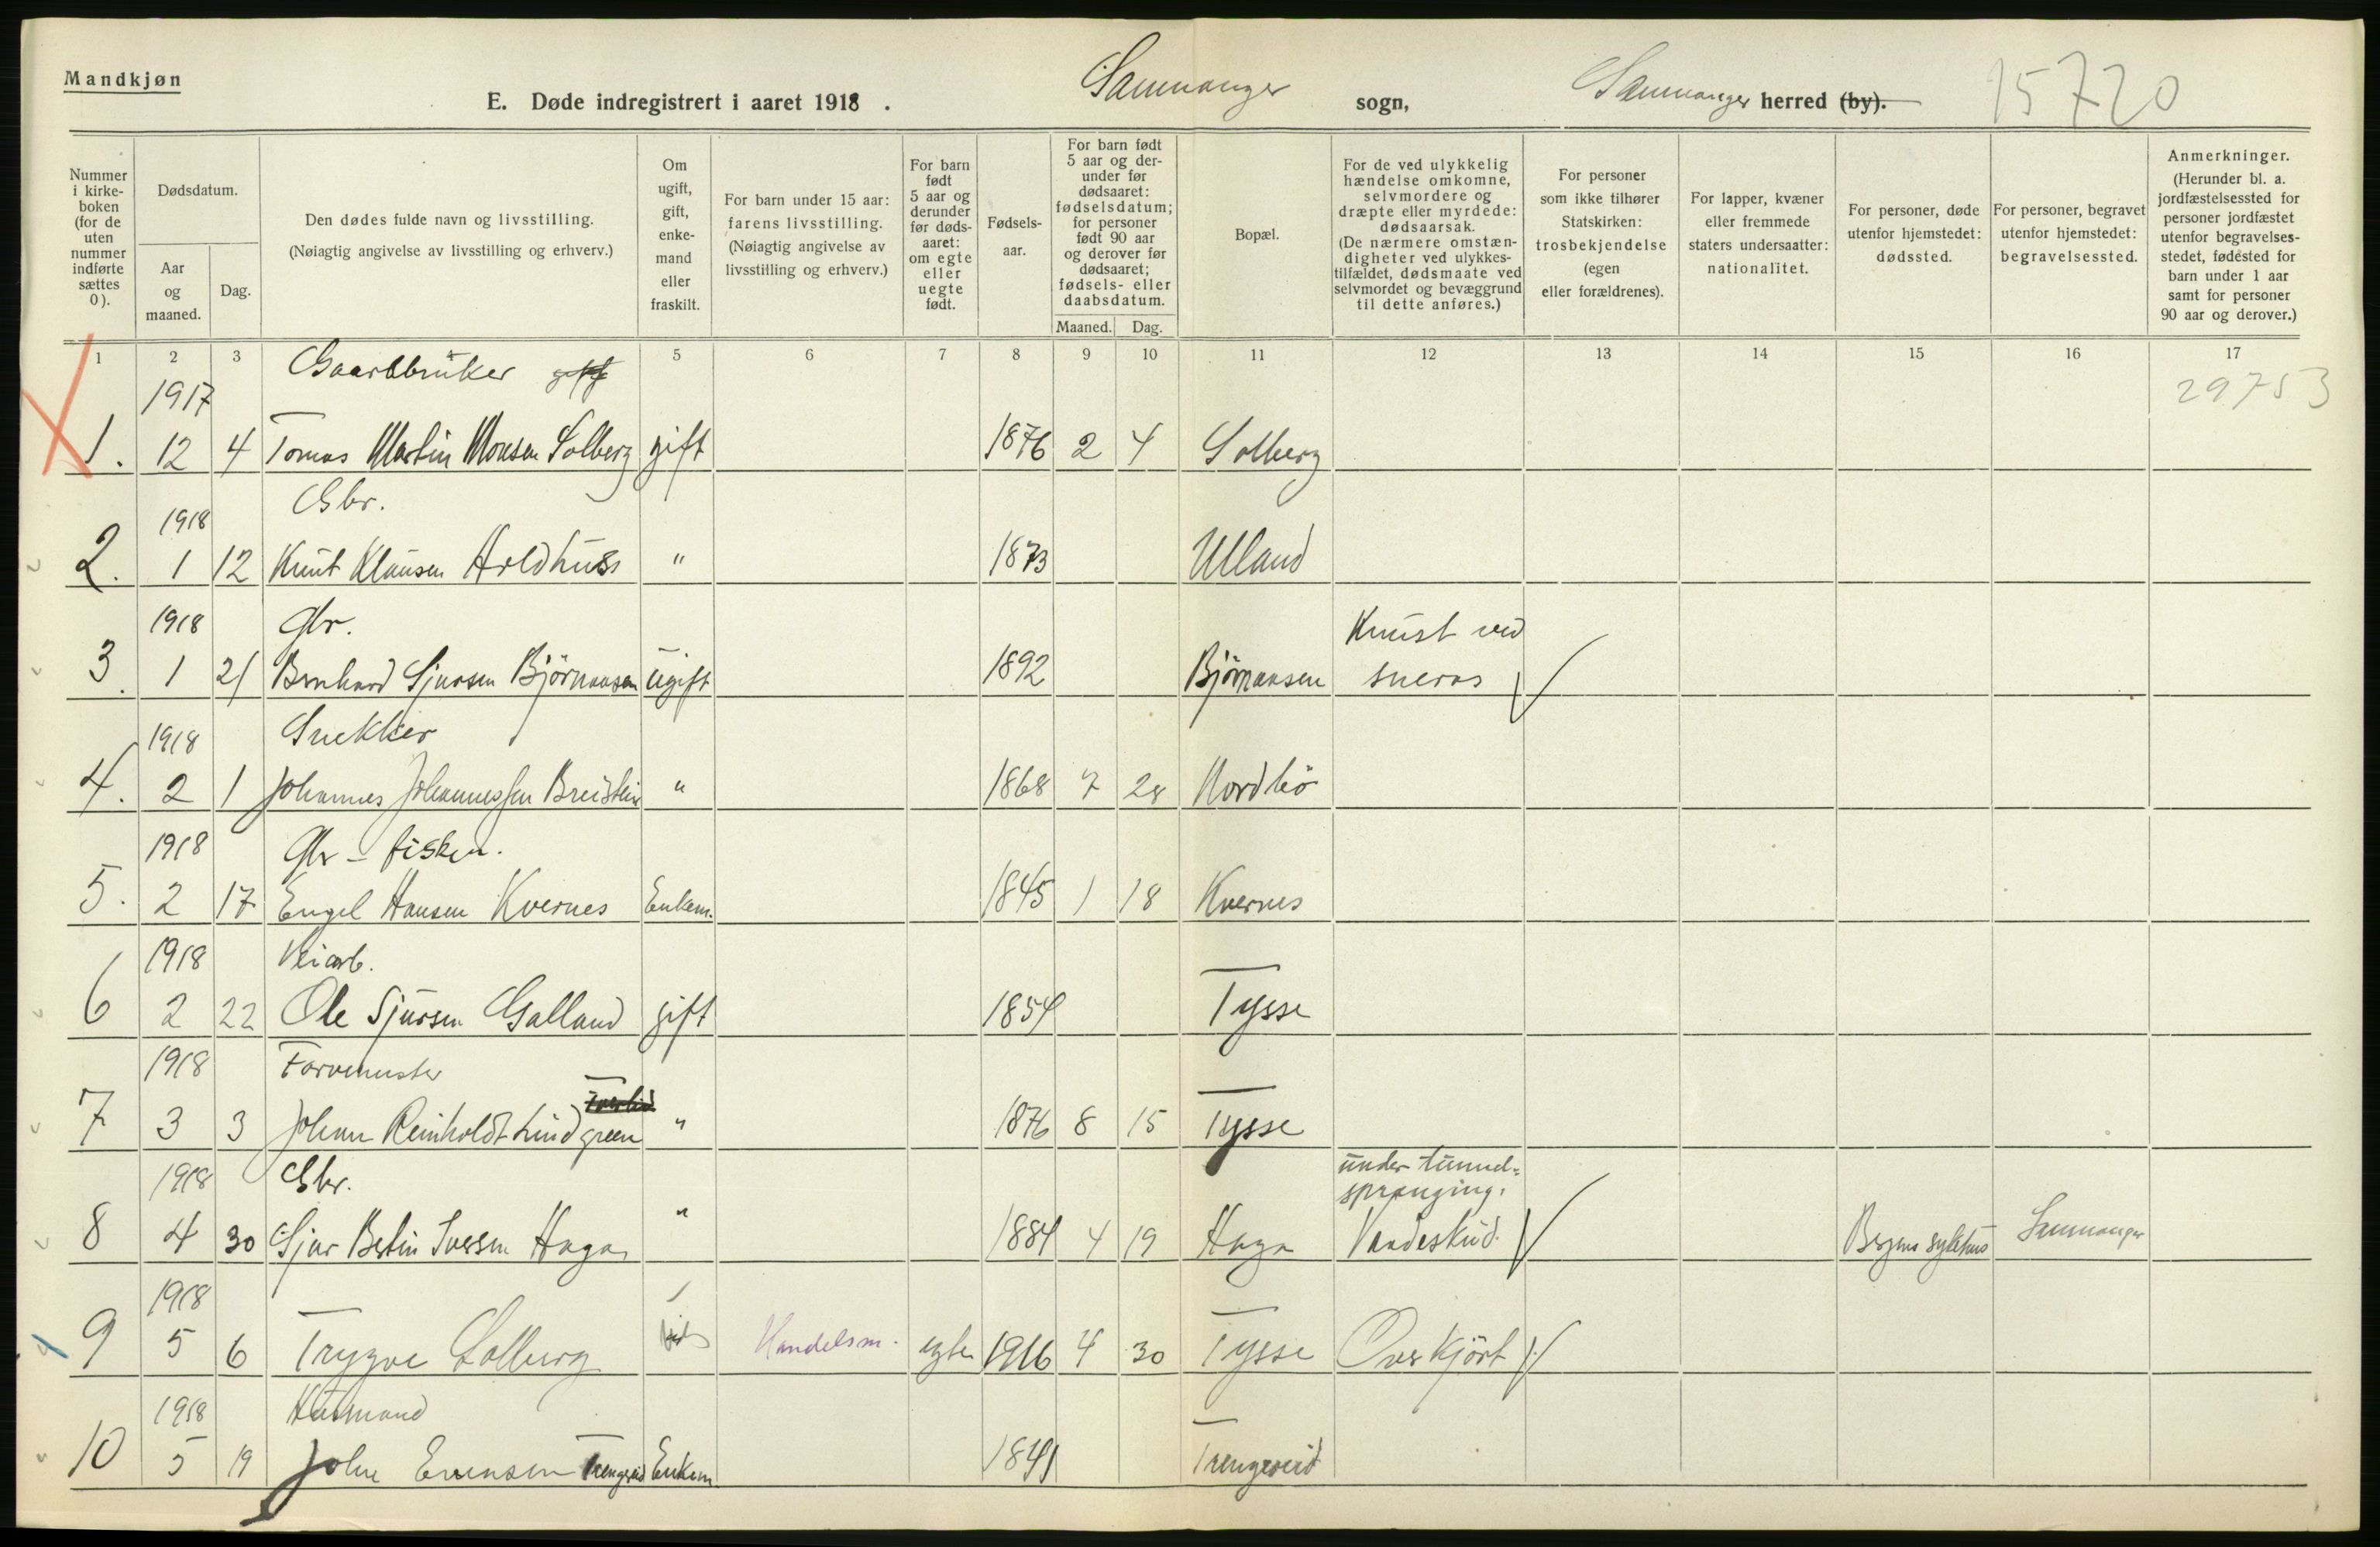 Mandkjøn
E. Døde indregistrert i aaret 1918 . Samnanger sogn, Samnanger herred (by). 15720
Nummer i kirke-boken (for de uten nummer indførte sættes 0).
Dødsdatum.
Aar og maaned.
Dag.
Den dødes fulde navn og livsstilling.
(Nøiagtig angivelse av livsstilling og erhverv.)
Om ugift, gift, enke-mand eller fraskilt.
For barn under 15 aar: farens livsstilling.
(Nøiagtig angivelse av livsstilling og erhverv.)
For barn født 5 aar og derunder før døds-aaret: om egte eller uegte født.
Fødsels-aar.
For barn født 5 aar og der-under før dødsaaret: fødselsdatum; for personer født 90 aar og derover før dødsaaret; fødsels- eller daabsdatum.
Maaned. Dag.
Bopæl.
For de ved ulykkelig hændelse omkomne, selvmordere og dræpte eller myrdede: dødsaarsak.
(De nærmere omstæn-digheter ved ulykkes-tilfældet, dødsmaate ved selvmordet og bevæggrund til dette anføres.)
For personer som ikke tilhører Statskirken: trosbekjendelse (egen eller forældrenes).
For lapper, kvæner eller fremmede staters undersaatter: nationalitet.
For personer, døde utenfor hjemstedet: dødssted.
For personer, begravet utenfor hjemstedet: begravelsessted.
Anmerkninger.
(Herunder bl. a. jordfæstelsessted for personer jordfæstet utenfor begravelses-stedet, fødested for barn under 1 aar samt for personer 90 aar og derover.)
1 2 3 4 5 6 7 8 9 10 11 12 13 14 15 16 17
1917 Gaardbruker gift 29753
1. 12 4 Tomas Martin Monsen Solberg gift 1876 2 4 Solberg
1918 Gbr.
2. 1 12 Knut Klausen Holdhus " 1873 Ulland
1918 Gbr. Knust ved
3. 1 21 Bernhard Sjursen Björnaasen ugift 1892 Björnaasen sneras
1918 Snekker
4. 2 1 Johannes Johannessen Breistein " 1868 7 28 Nordbö
1918 Gbr - fisker.
5. 2 17 Engel Hansen Kvernes Enkem. 1845 1 18 Kvernes
1918 Veiarb.
6 2 22 Ole Sjursen Galland gift 1854 Tysse
1918 Farvemester
7 3 3 Johan Reinholdt Lindgreen " 1876 8 15 Tysse
1918 Gbr. under tunnel-
sprænging.
8 4 30 Sjur Bertin Iversen Haga " 1884 4 19 Haga Vaadeskud. Bergens sykehus Samnanger
1918
9 5 6 Trygve Solberg Handelsm. egte 1916 4 30 Tysse Overkjört
1918 Husmand
10 5 19 John Evensen Trengereid Enkem. 1841 Trengereid